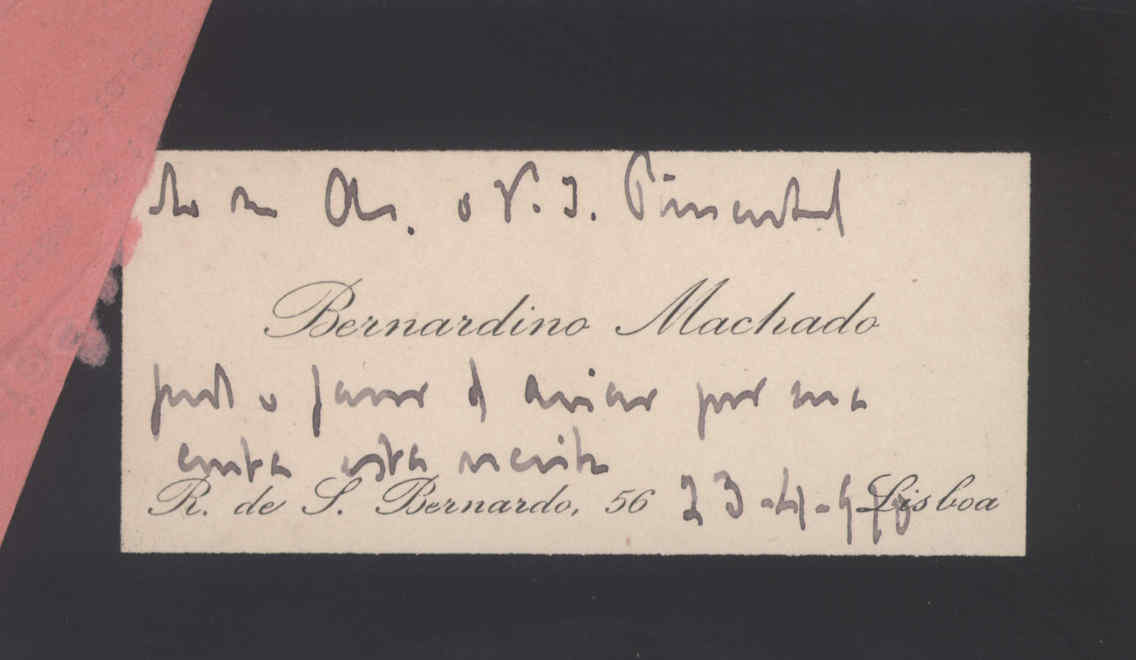 Ao seu Am. o V. J. Pimentel
Bernardino Machado
pede o favor d aviar por sua
conta esta receita
R. de S. Bernardo, 56 23-4-910 Lisboa